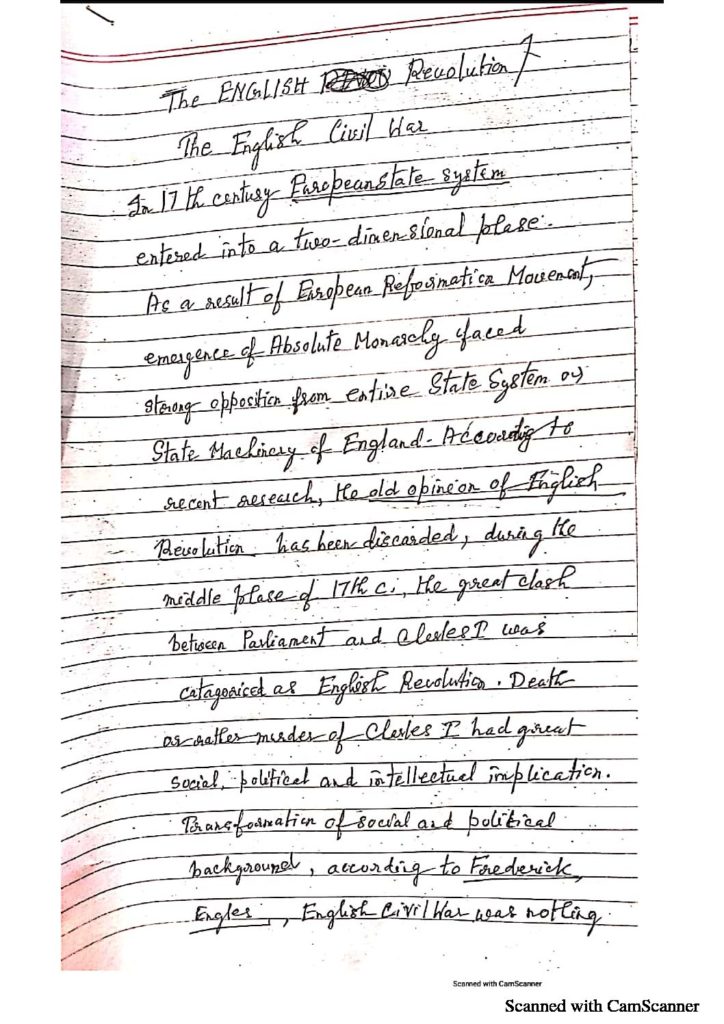 The ENGLISH Revolution /
The English Civil War
In 17th century European state system
entered into a two-dimensional phase.
As a result of European Reformation Movement,
emergence of Absolute Monarchy faced
strong opposition from entire State System or
State Machinery of England. According to
recent research, the old opinion of English
Revolution has been discarded, during the
middle phase of 17th c., the great clash
between Parliament and Charles I was
catagoriced as English Revolution. Death
or rather murder of Charles I had great
social, political and intellectual implication.
Transformation of social and political
background, according to Frederick,
Engles, English Civil War was nothing
Scanned with CamScanner
Scanned with CamScanner